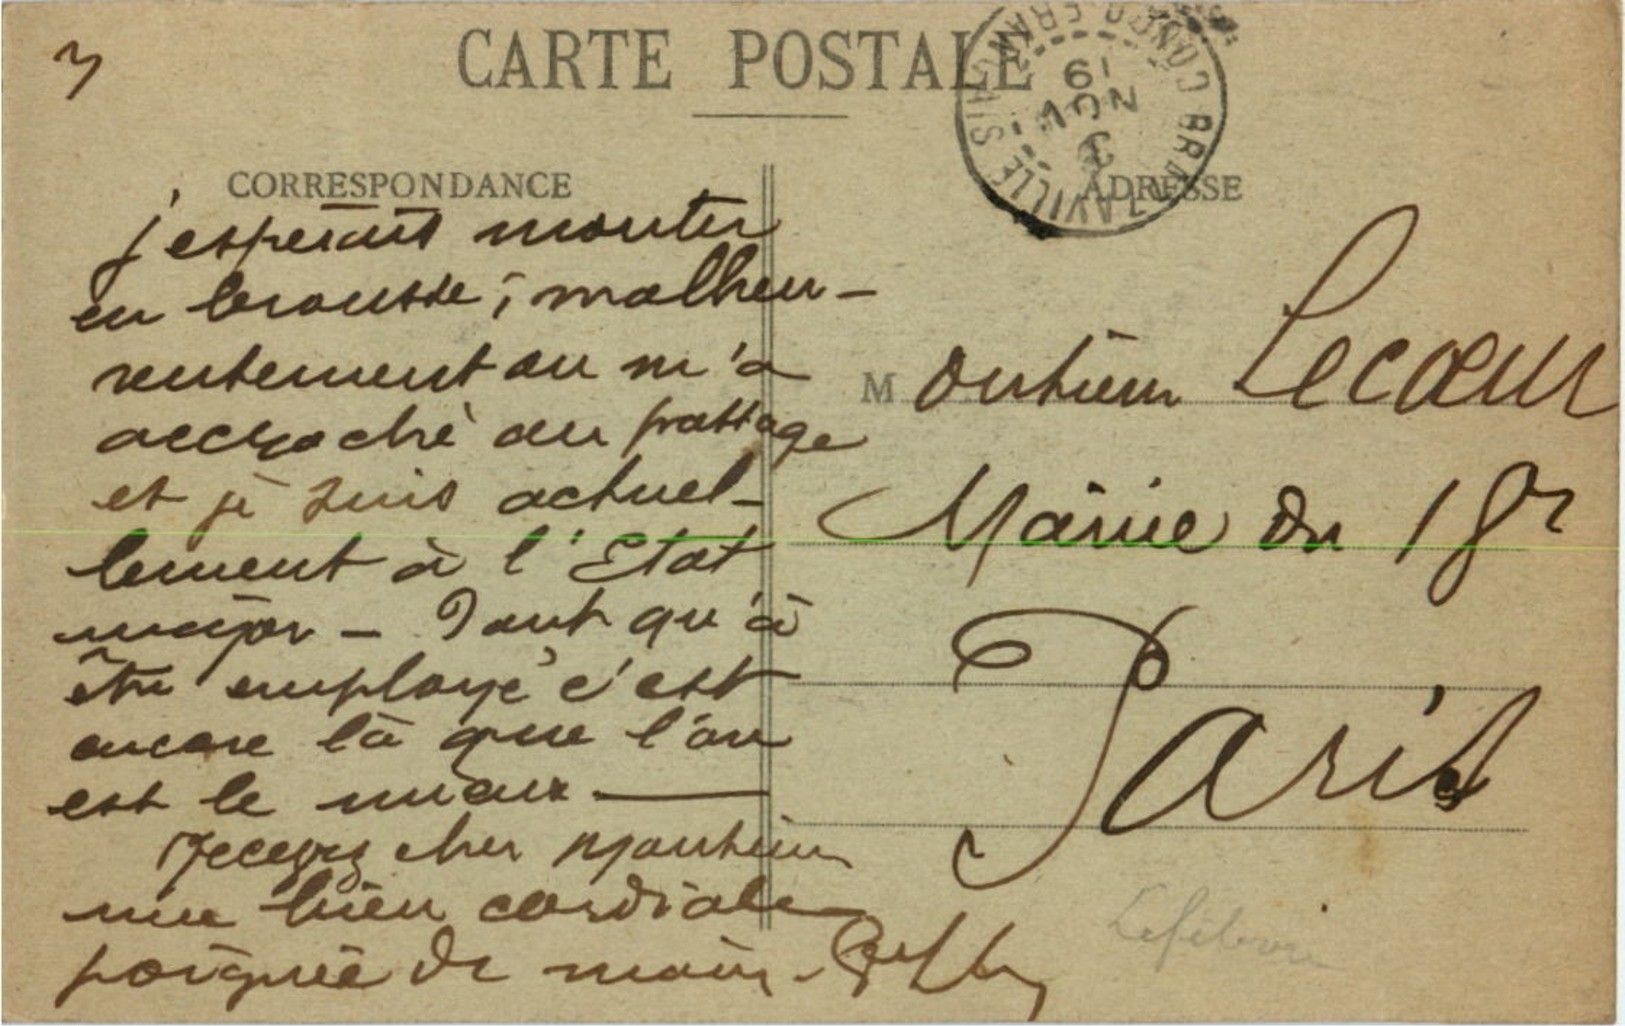 3
CARTE POSTALE
BRAZZAVILLE
CONGO FRANÇAIS
19
NOV
CORRESPONDANCE
j'esperais monter
en brousse ; malheu-
reusement on m'a
accroché au passage
et je suis actuel-
lement à l'Etat
major - Tant qu'à
être employé c'est
encore là que l'on
est le mieux —
Recevez cher Monsieur
une bien cordiale
poignée de main.
ADRESSE
Monsieur Lecœur
Mairie du 18e
Paris
Lefebvre